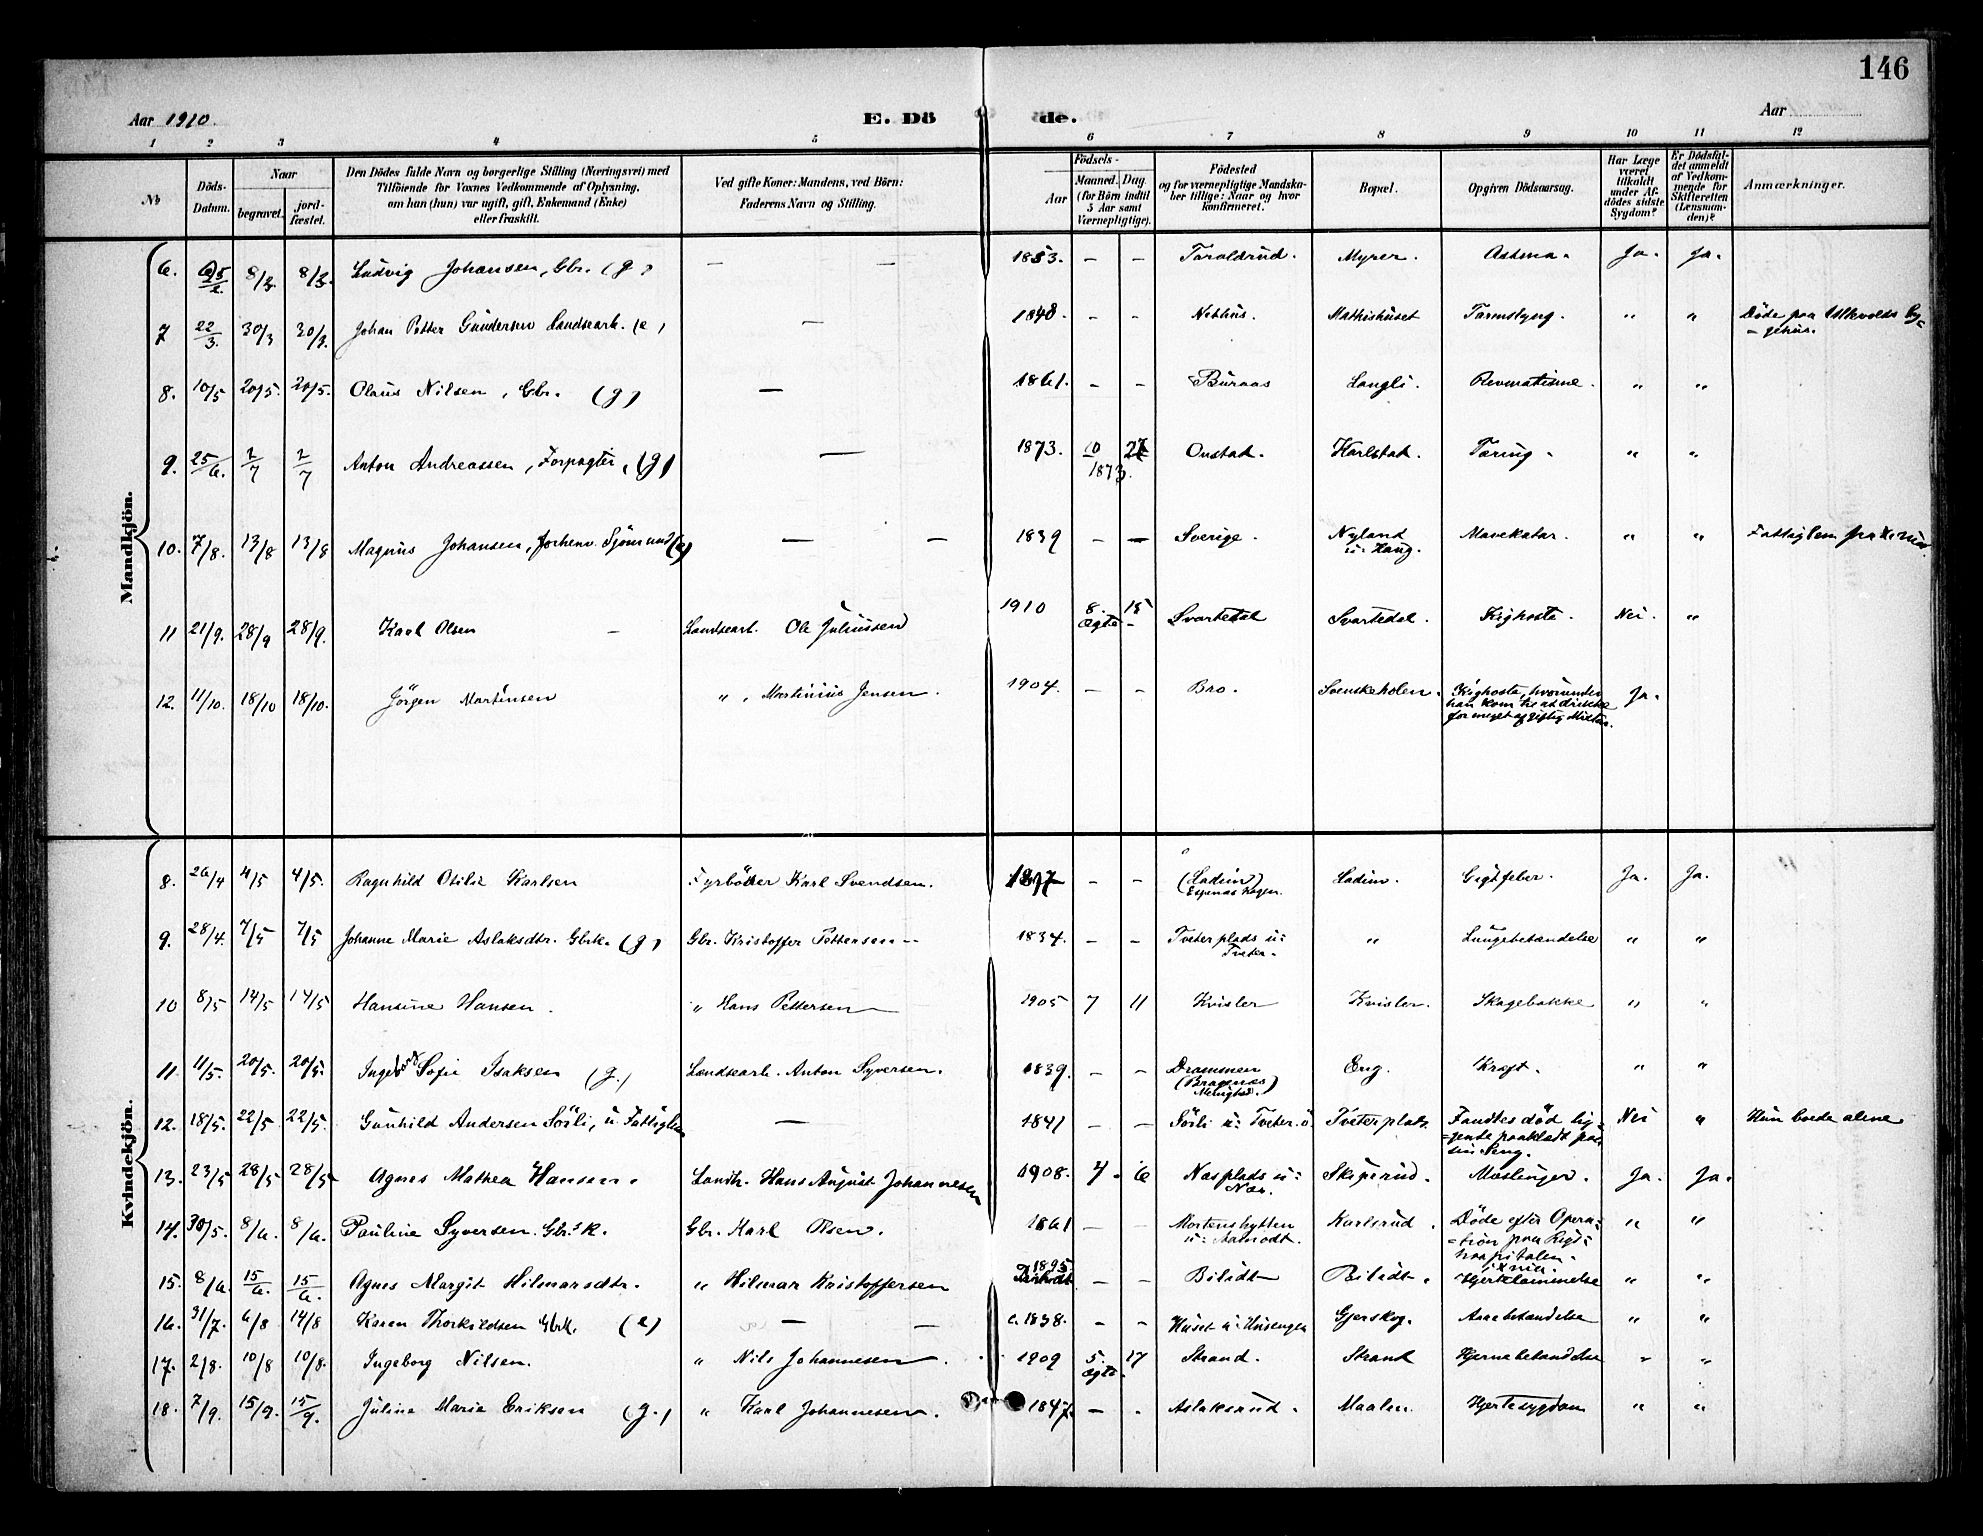 146
Aar 1910.
E. Dö de.
Aar
1 2 3 4 5 6 7 8 9 10 11 12
No
Döds-Datum.
Naar
begravet.
jord-fæstet.
Den Dödes fulde Navn og borgerlige Stilling (Næringsvei) med
Tilföiende for Voxnes Vedkommende af Oplysning,
om han (hun) var ugift, gift, Enkemand (Enke)
eller fraskilt.
Ved gifte Koner: Mandens, ved Börn:
Faderens Navn og Stilling.
Födsels-
Aar
Maaned. Dag
(for Börn indtil
5 Aar samt
Værnepligtige).
Födested
og for værnepligtige Mandska-
ber tillige: Naar og hvor
konfirmeret.
Bopæl.
Opgiven Dödsaarsag.
Har Læge
været
tilkaldt
under Af-
dödes sidste
Sygdom?
Er Dödsfal-
det anmeldt
af Vedkom-
mende for
Skifteretten
(Lensman-
den)?
Anmærkninger.
Mandkjön.
6. 25/2 8/3 8/3. Ludvig Johansen, Gbr. (g) — — 1853. – – Taraldrud. Myrer. Astma. Ja. Ja.
7 22/3. 30/3 30/3. Johan Petter Gundersen Landsearb. (e) — 1848. – – Nithus. Mathishuset Tarmslyng. " " Döde paa Ulkvolds Sy-
=gehus.
8. 10/5 20/5. 20/5. Olaus Nilsen, Gbr. (g) — 1861. – – Buraas Langli. Revmatisme. " "
9. 25/6. 2/7 2/7 Anton Andreassen, Forpagter, (g) — 1873. 10 27 Onstad. Karlstad. Tæring. " "
1873.
10. 7/8. 13/8 13/8 Magnus Johansen, forhenv. Sjömand (e) — – 1839 – – Sverige. Nyland Mavekatar. " " Fattiglem fra
u. Haug.
11 21/9. 28/9 28/9. Karl Olsen – Landsearb. Ole Juliussen 1910 8. 15 Svartedal Svartedal. Kighoste. Nei. "
ægte –
12. 11/10. 18/10 18/10. Jörgen Martinsen " , Martinius Jensen. 1904. – – Bro. Svenskeholen. Kighoste, hvorunder Ja.
han kom til at drikke
for meget af giftig Mixtur.
Kvindekjön.
8. 26/4 4/5 4/5. Ragnhild Otilie Karlsen Fyrböder Karl Svendsen. – – (Ladim) Ladim. Gigtfeber. Ja. Ja.
9. 28/4. 7/5 7/5 Johanne Marie Aslaksdtr. Gbrk. (g) Gbr. Kristoffer Pettersen 1834. – – Tveter plads u: " Lungebetændelse " "
Tveter.
10 8/5 14/5 14/5 Hansine Hansen. " Hans Pettersen 1905 7 11 Kvisler Kvisler. Skagebakke " "
11. 11/5. 20/5. 20/5. Ingeborg Sofie Isaksen (g.) Landsearb. Anton Syversen. 1839. – – Drammen Eng. Kræft. " "
(Bragenæs)
Menighed.
12. 18/5. 22/5 22/5. Gunhild Andersen Sörli, u Fattiglem — 1841 – – Sörli u: Tveter. ö Tveterplads. Fandtes död lig- Nei " Hun boede alene
=gende paaklædt paa
sin Seng.
13. 23/5 28/5 28/5 Agnes Mathea Hansen. Landh. Hans August Johannesen 1908. 4. 6 Næsplads u: Skiperud. Mæslinger. Ja. Ja.
Næs.
14. 30/5. 8/6. 8/6. Pauline Syversen. Gbr.'k. Gbr. Karl Olsen. 1861 – – Mortenshytten Karlsrud. Döde efter Opera- " "
u: Aamodt. =tion paa Rigs-
hospitalen.
i Xnia.
15. 8/6. 15/6. 15/6. Agnes Margit Hilmarsdtr. " Hilmar Kristoffersen 1895 – – Bilidt Bilidt. Hjerklammelse " "
16. 31/7. 6/8 14/8 Karen Thorkildsen Gbrk. (e) — – c. 1838. – – Huset u: Husengen Gjerskog. Aarebetændelse " "
17. 2/8. 10/8 10/8. Ingeborg Nilsen. " Nils Johannesen. 1909 5. 17 Strand. Strand Hjernebetændelse " "
ægte.
18. 7/9. 15/9. 15/9. Juline Marie Eriksen (g.) " Karl Johannesen. 1847. – . Aslaksrud. Maalen. Hjertesygdom " "